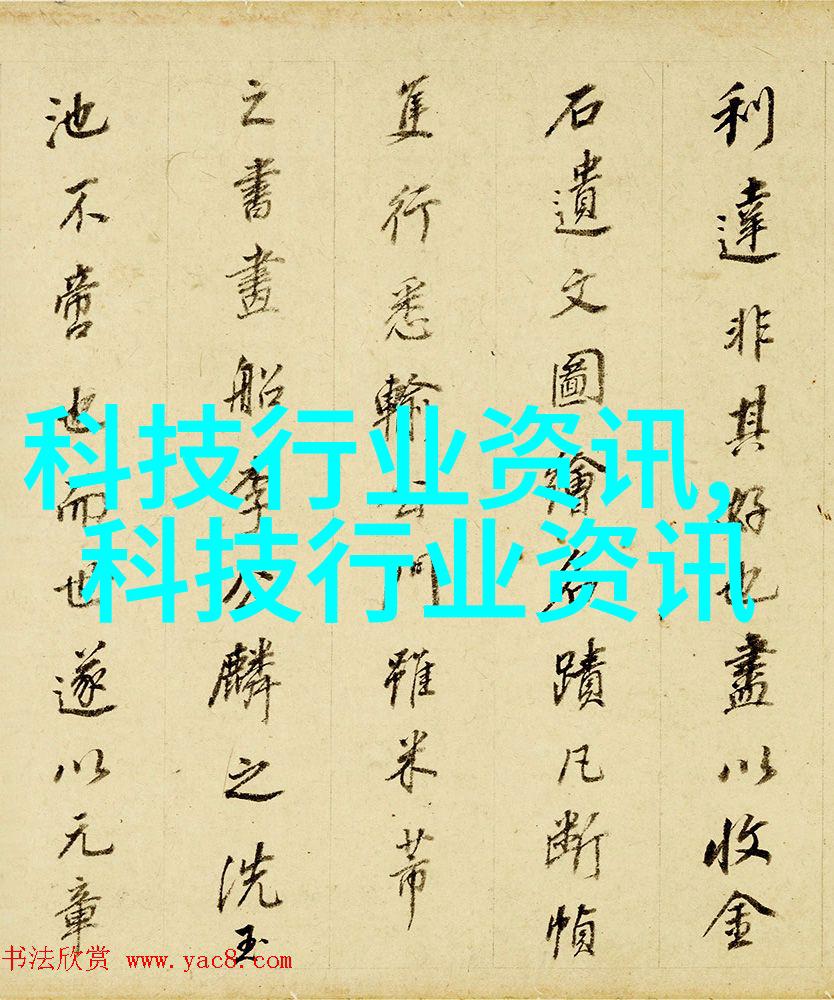 利達非其好也盡以收金
石遺文圖繪名蹟凡断幀
隻行悉輸門雖米芾
之書畫船李公麟之洗玉
池不啻也而世遂以元章
科技行业资讯,
科技行业资讯
书法欣赏 www.yac8.com